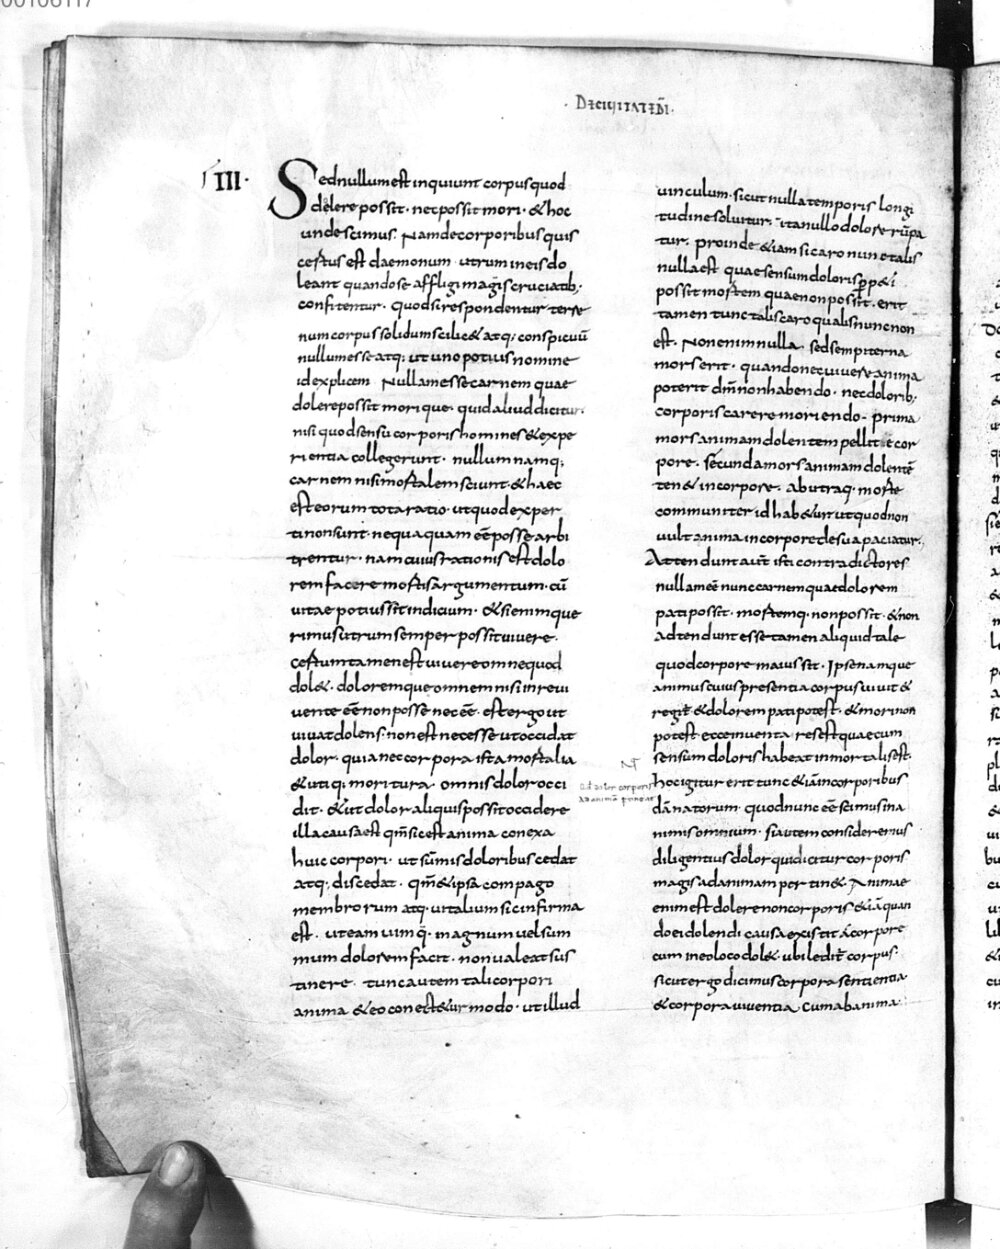 00106117
· DECIUITATEDI·
III·
Sed nullum est inquiunt corpus quod
dolere possit· nec possit mori· & hoc
unde scimus· Nam de corporibus quis
certus est daemonum· utrum in eis do
leant quando se affligi magis cruciatib;
confitentur· quod si respondentur terre
num corpus solidum scilic& atq; conspicuū
nullum esse atq; ut uno potius nomine
id explicem Nullam esse carnem quae
dolere possit mori que· quid aliud dicitur·
nisi quod sensu corporis homines & expe
rientia collegerunt· nullum namq;
carnem nisi mortalem sciunt· & haec
est eorum tota ratio· ut quod exper
ti non sunt· nequaquam eē posse arbi
trentur· nam cuius rationis est dolo
rem facere mortis argumentum· cū
vitae potius sit indicium· & si enim que
rimus utrum semper possit uiuere·
certum tamen est uiuere omne quod
dol&· doloremque omnem nisi in re ui
uente eē non posse· nec eē· est ergo ut
uiuat dolens· non est necesse ut occidat
dolor· quia nec corpora ista mortalia
& utiq; moritura· omnis dolor occi
dit· & ut dolor aliquis possit occidere
illa causa est qm̄ sic est anima conexa
huic corpori· ut sūmis doloribus cedat
atq; discedat· qm̄ & ipsa compago
membrorum atq· uitalium sic infirma
est· ut eam uim q̄· magnum uel sum
mum dolorem facit· non ualeat sus
tinere· tunc autem tali corpori
anima & eo conect&ur modo· ut illud
uinculum· sicut nulla temporis longi
tudine soluitur· ita nullo dolore rūpa
tur· proinde & iam si caro nunc talis
nulla est quae sensum doloris p̄p&i
possit mortem quae non possit· erit
tamen tunc talis caro qualis nunc non
est· Non enim nulla· sed sempiterna
mors erit· quando nec uiuere anima
poterit dm̄ non habendo· nec dolorib;
corporis carere moriendo· prima
mors animam dolentem pellit e cor
pore· secunda mors animam dolentē
ten& in corpore· ab utraq· morte
communiter id hab&ur ut quod non
uult anima in corpore de sua paciatur·
Attendunt aut̄ isti contradictores
nullam eē nunc carnem quae dolorem
pati possit· mortemq· non possit· & non
adtendunt esse tamen aliquid tale
quod corpore maius sit· Ipse namque
animus cuius presentia corpus uiuit &
regit̄ & dolorem pati potest· & mori non
potest ecce inuenta res est quae cum
sensum doloris habeat inmortalis est·
hoc igitur erit tunc & iā in corporibus
dānatorum· quod nunc eē scimus in a
nimis omnium· si autem consideremus
diligentius dolor qui dicitur corporis
magis ad animam pertin&· Animae
enim est dolere non corporis & iā quan
do ei dolendi causa existit a corpore
cum in eo loco dol& ubi ledit̄ corpus·
sicut ergo dicimus corpora sentientia
& corpora uiuentia cum ab anima·
N̄T
qd dolor corporis
ad animā pertineat